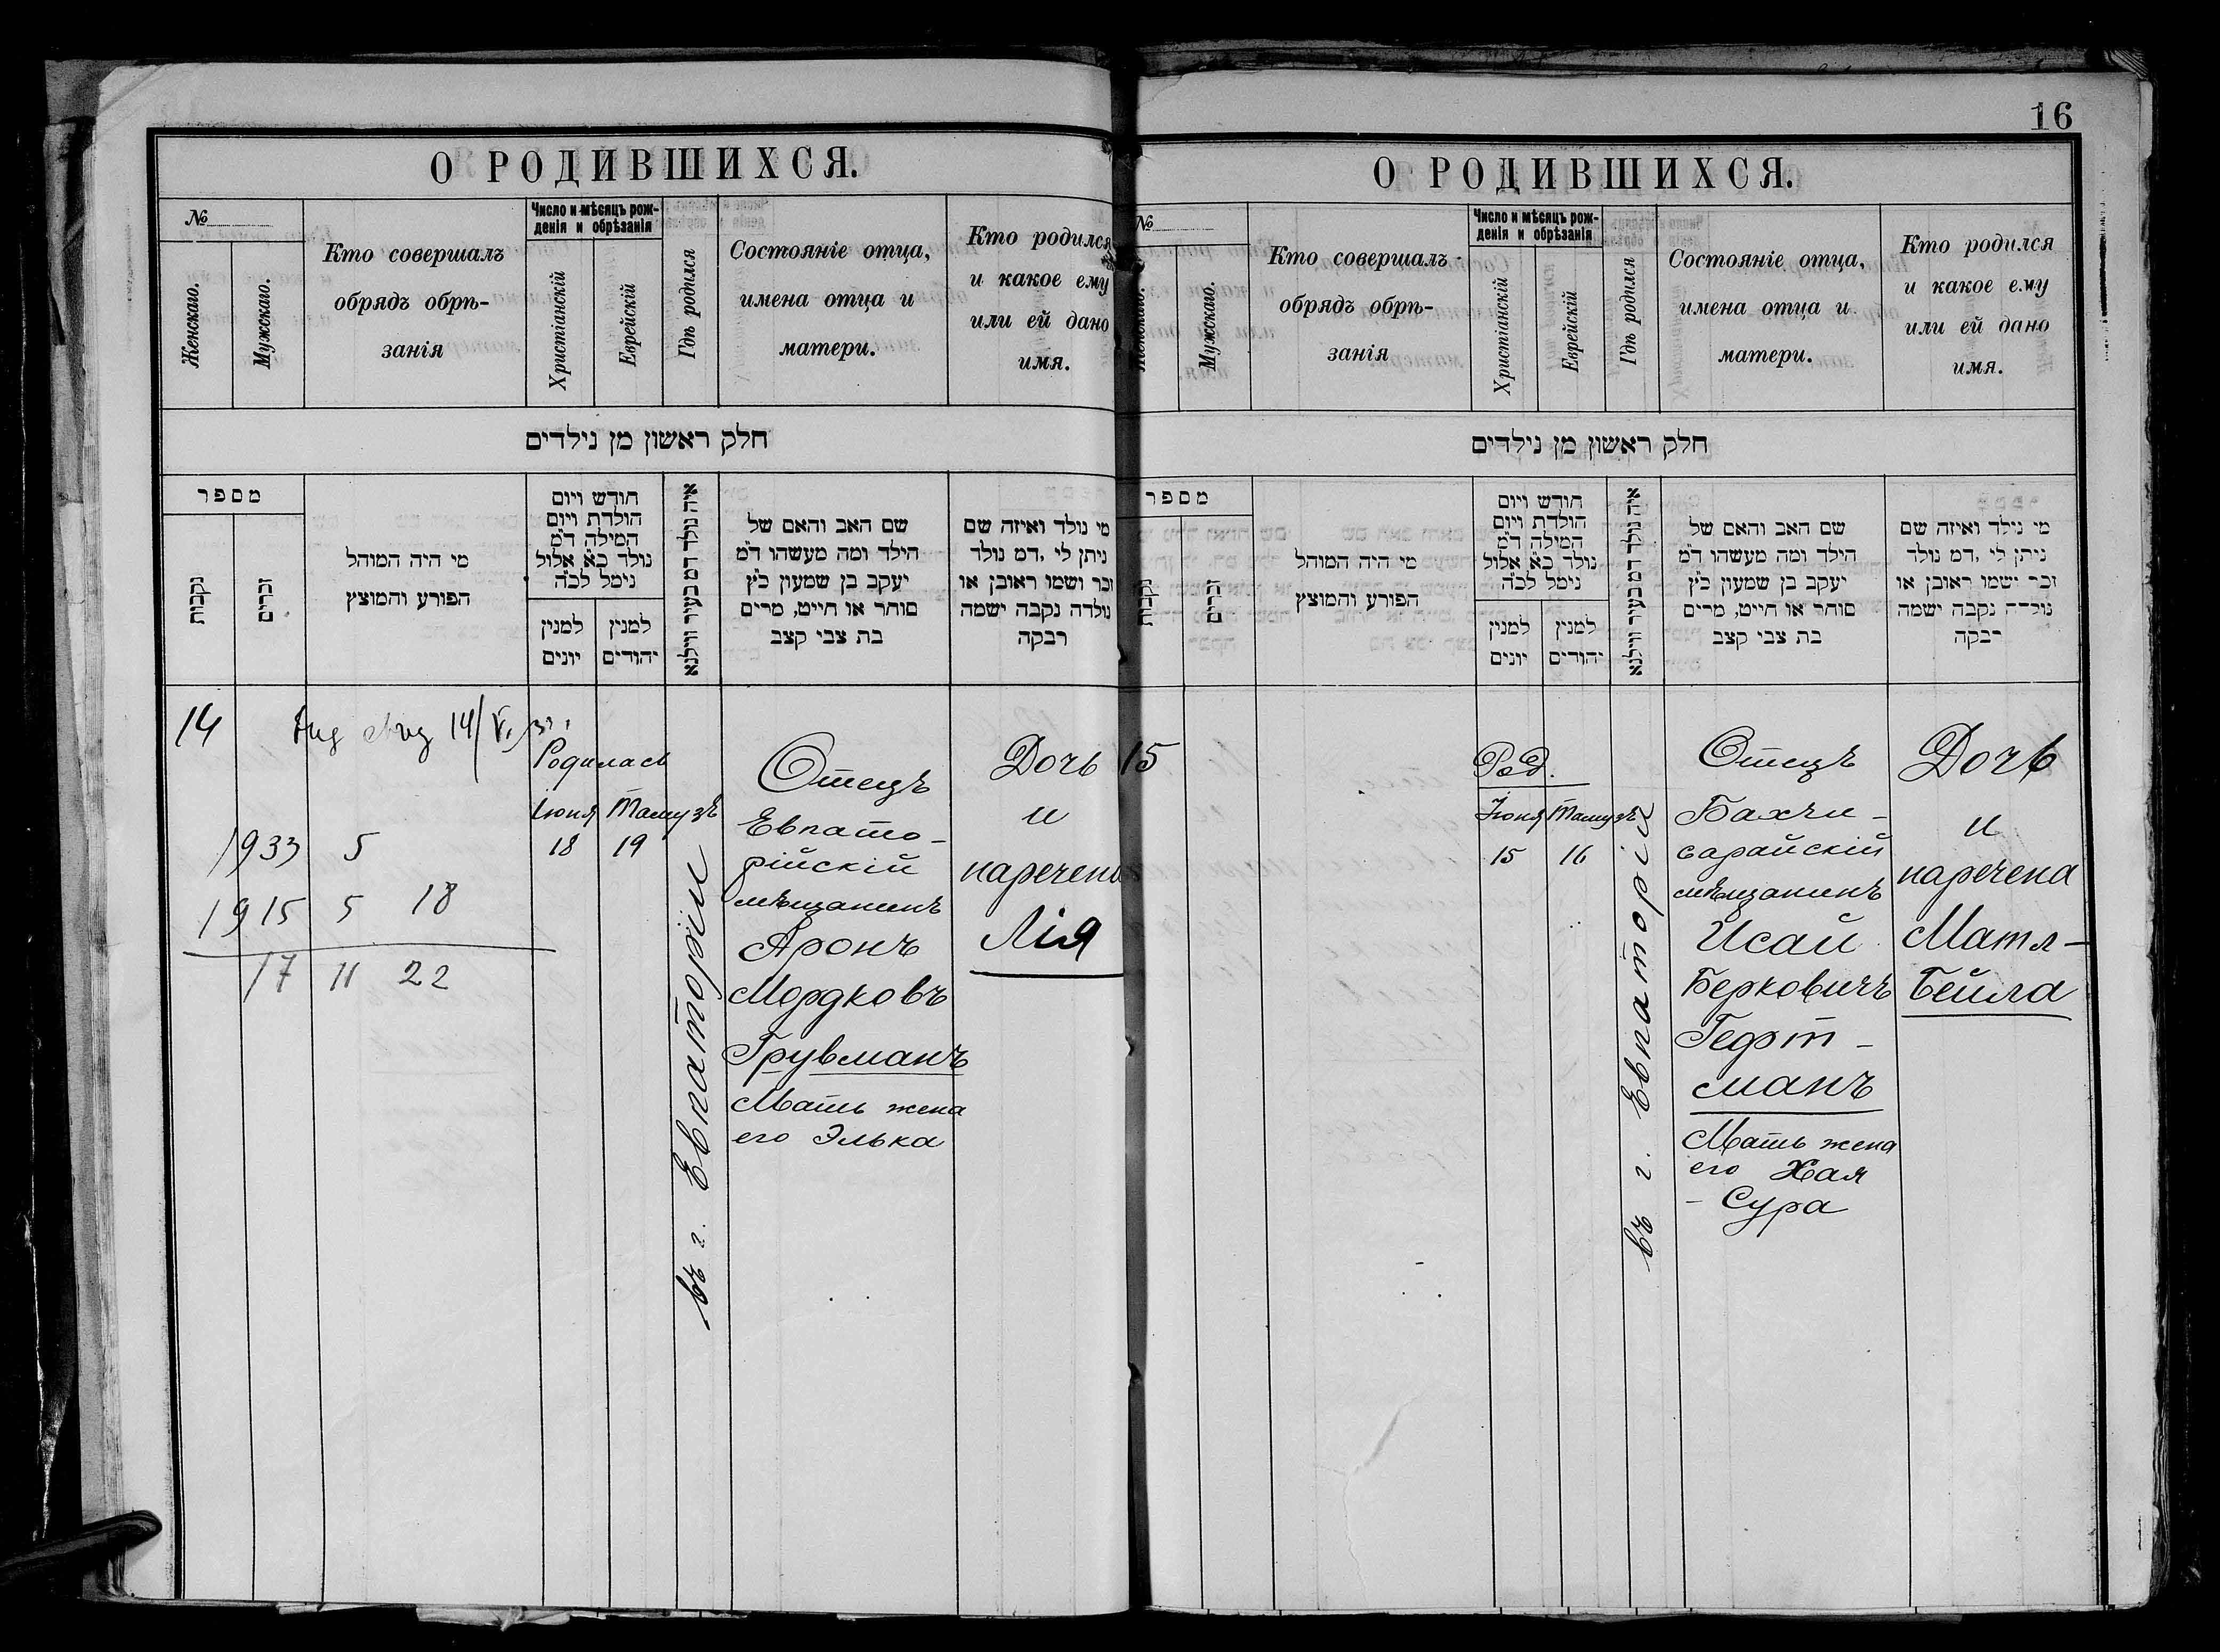 16
О РОДИВШИХСЯ.
№
Женскаго.
Мужскаго.
Кто совершалъ
обрядъ обрѣ-
занія
Число и мѣсяцъ рож-
денія и обрѣзанія
Христіанскій
Еврейскій
Гдѣ родился
Состояніе отца,
имена отца и
матери.
Кто родился
и какое ему
или ей дано
имя.
חלק ראשון מן נילדים
מספר
נקבות
זכרים
מי היה המוהל
הפורע והמוצץ
חודש ויום
הולדת ויום
המילה ד״מ
נולד כ״א אלול
נימל לכ״ה
למנין
יונים
למנין
יהודים
איה נולד דמ בעיר ווילנא
שם האב והאם של
הילד ומה מעשהו ד״מ
יעקב בן שמעון כ״ץ
סוחר או חייט, מרים
בת צבי קצב
מי נולד ואיזה שם
ניתן לי ,דמ נולד
זכר ושמו ראובן או
נולדה נקבה ישמה
רבקה
14
14/V
Родилась
Іюня Тамузъ
18 19
1933 5
1915 5 18
17 11 22
въ г. Евпаторіи
Отецъ
Евпато-
рійскій
мѣщанинъ
Аронъ
Мордковъ
Грувманъ
Мать жена
его Элька
Дочь
и
наречена
Лія
О РОДИВШИХСЯ.
№
Женскаго.
Мужскаго.
Кто совершалъ
обрядъ обрѣ-
занія
Число и мѣсяцъ рож-
денія и обрѣзанія
Христіанскій
Еврейскій
Гдѣ родился
Состояніе отца,
имена отца и
матери.
Кто родился
и какое ему
или ей дано
имя.
חלק ראשון מן נילדים
מספר
נקבות
זכרים
מי היה המוהל
הפורע והמוצץ
חודש ויום
הולדת ויום
המילה ד״מ
נולד כ״א אלול
נימל לכ״ה
למנין
יונים
למנין
יהודים
איה נולד דמ בעיר ווילנא
שם האב והאם של
הילד ומה מעשהו ד״מ
יעקב בן שמעון כ״ץ
סוחר או חייט, מרים
בת צבי קצב
מי נילד ואיזה שם
ניתן לי ,דמ נולד
זכר ישמו ראובן או
נולדה נקבה ישמה
רבקה
15
Род.
Іюня Тамузъ
15 16
въ г. Евпаторіи
Отецъ
Бахчи-
сарайскій
мѣщанинъ
Исай
Берковичъ
Гефт-
манъ
Мать жена
его Хая
-Сура
Дочь
и
наречена
Матл-
Бейла